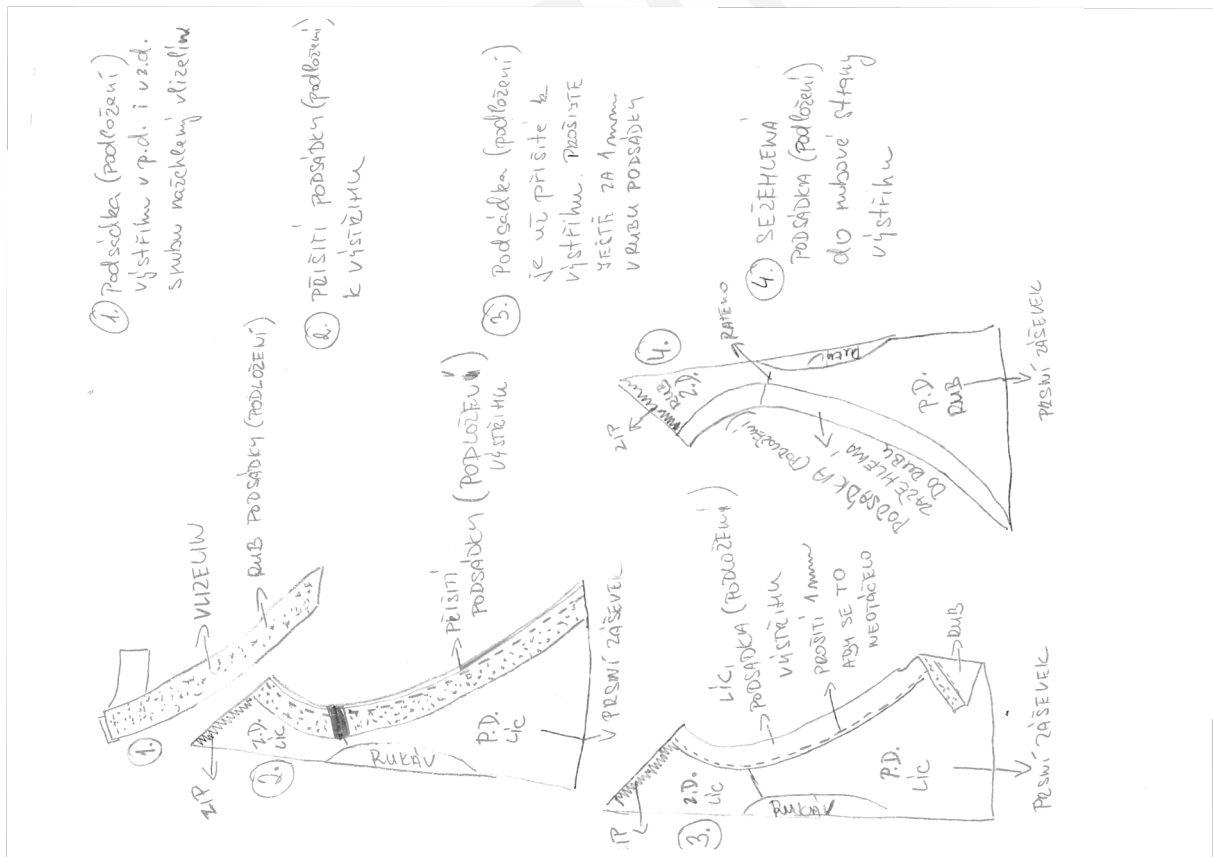 1. Podsádka (podložení)
výstřihu v p.d. i v z.d.
s rubu nažehlený vlizelin
2. PŘIŠITÍ PODSÁDKY (podložení)
K VÝSTŘIHU
3. Podsádka (podložení)
je už přišité k
výstřihu. PROŠIJTE
JEŠTĚ ZA 1mm
V RUBU PODSÁDKY
4. SEŽEHLENÁ
PODSÁDKA (podložení)
do rubové strany
výstřihu
1.
VLIZELIN
RUB PODSÁDKY (PODLOŽENÍ)
2.
ZIP
Z.D.
LÍC
RUKÁV
P.D.
LÍC
PŘIŠITÍ
PODSÁDKY (PODLOŽENÍ)
VÝSTŘIHU
PRSNÍ ZÁŠEVEK
3.
ZIP
Z.D.
LÍC
RUKÁV
P.D.
LÍC
LÍC
PODSÁDKA (PODLOŽENÍ)
VÝSTŘIHU
PROŠITÍ 1mm
ABY SE TO
NEOTÁČELO
RUB
PRSNÍ ZÁŠEVEK
4.
ZIP
Z.D.
RUB
RAMENO
PODSÁDKA (PODLOŽENÍ)
ZAŽEHLENÁ
DO RUBU
P.D.
RUB
PRSNÍ ZÁŠEVEK